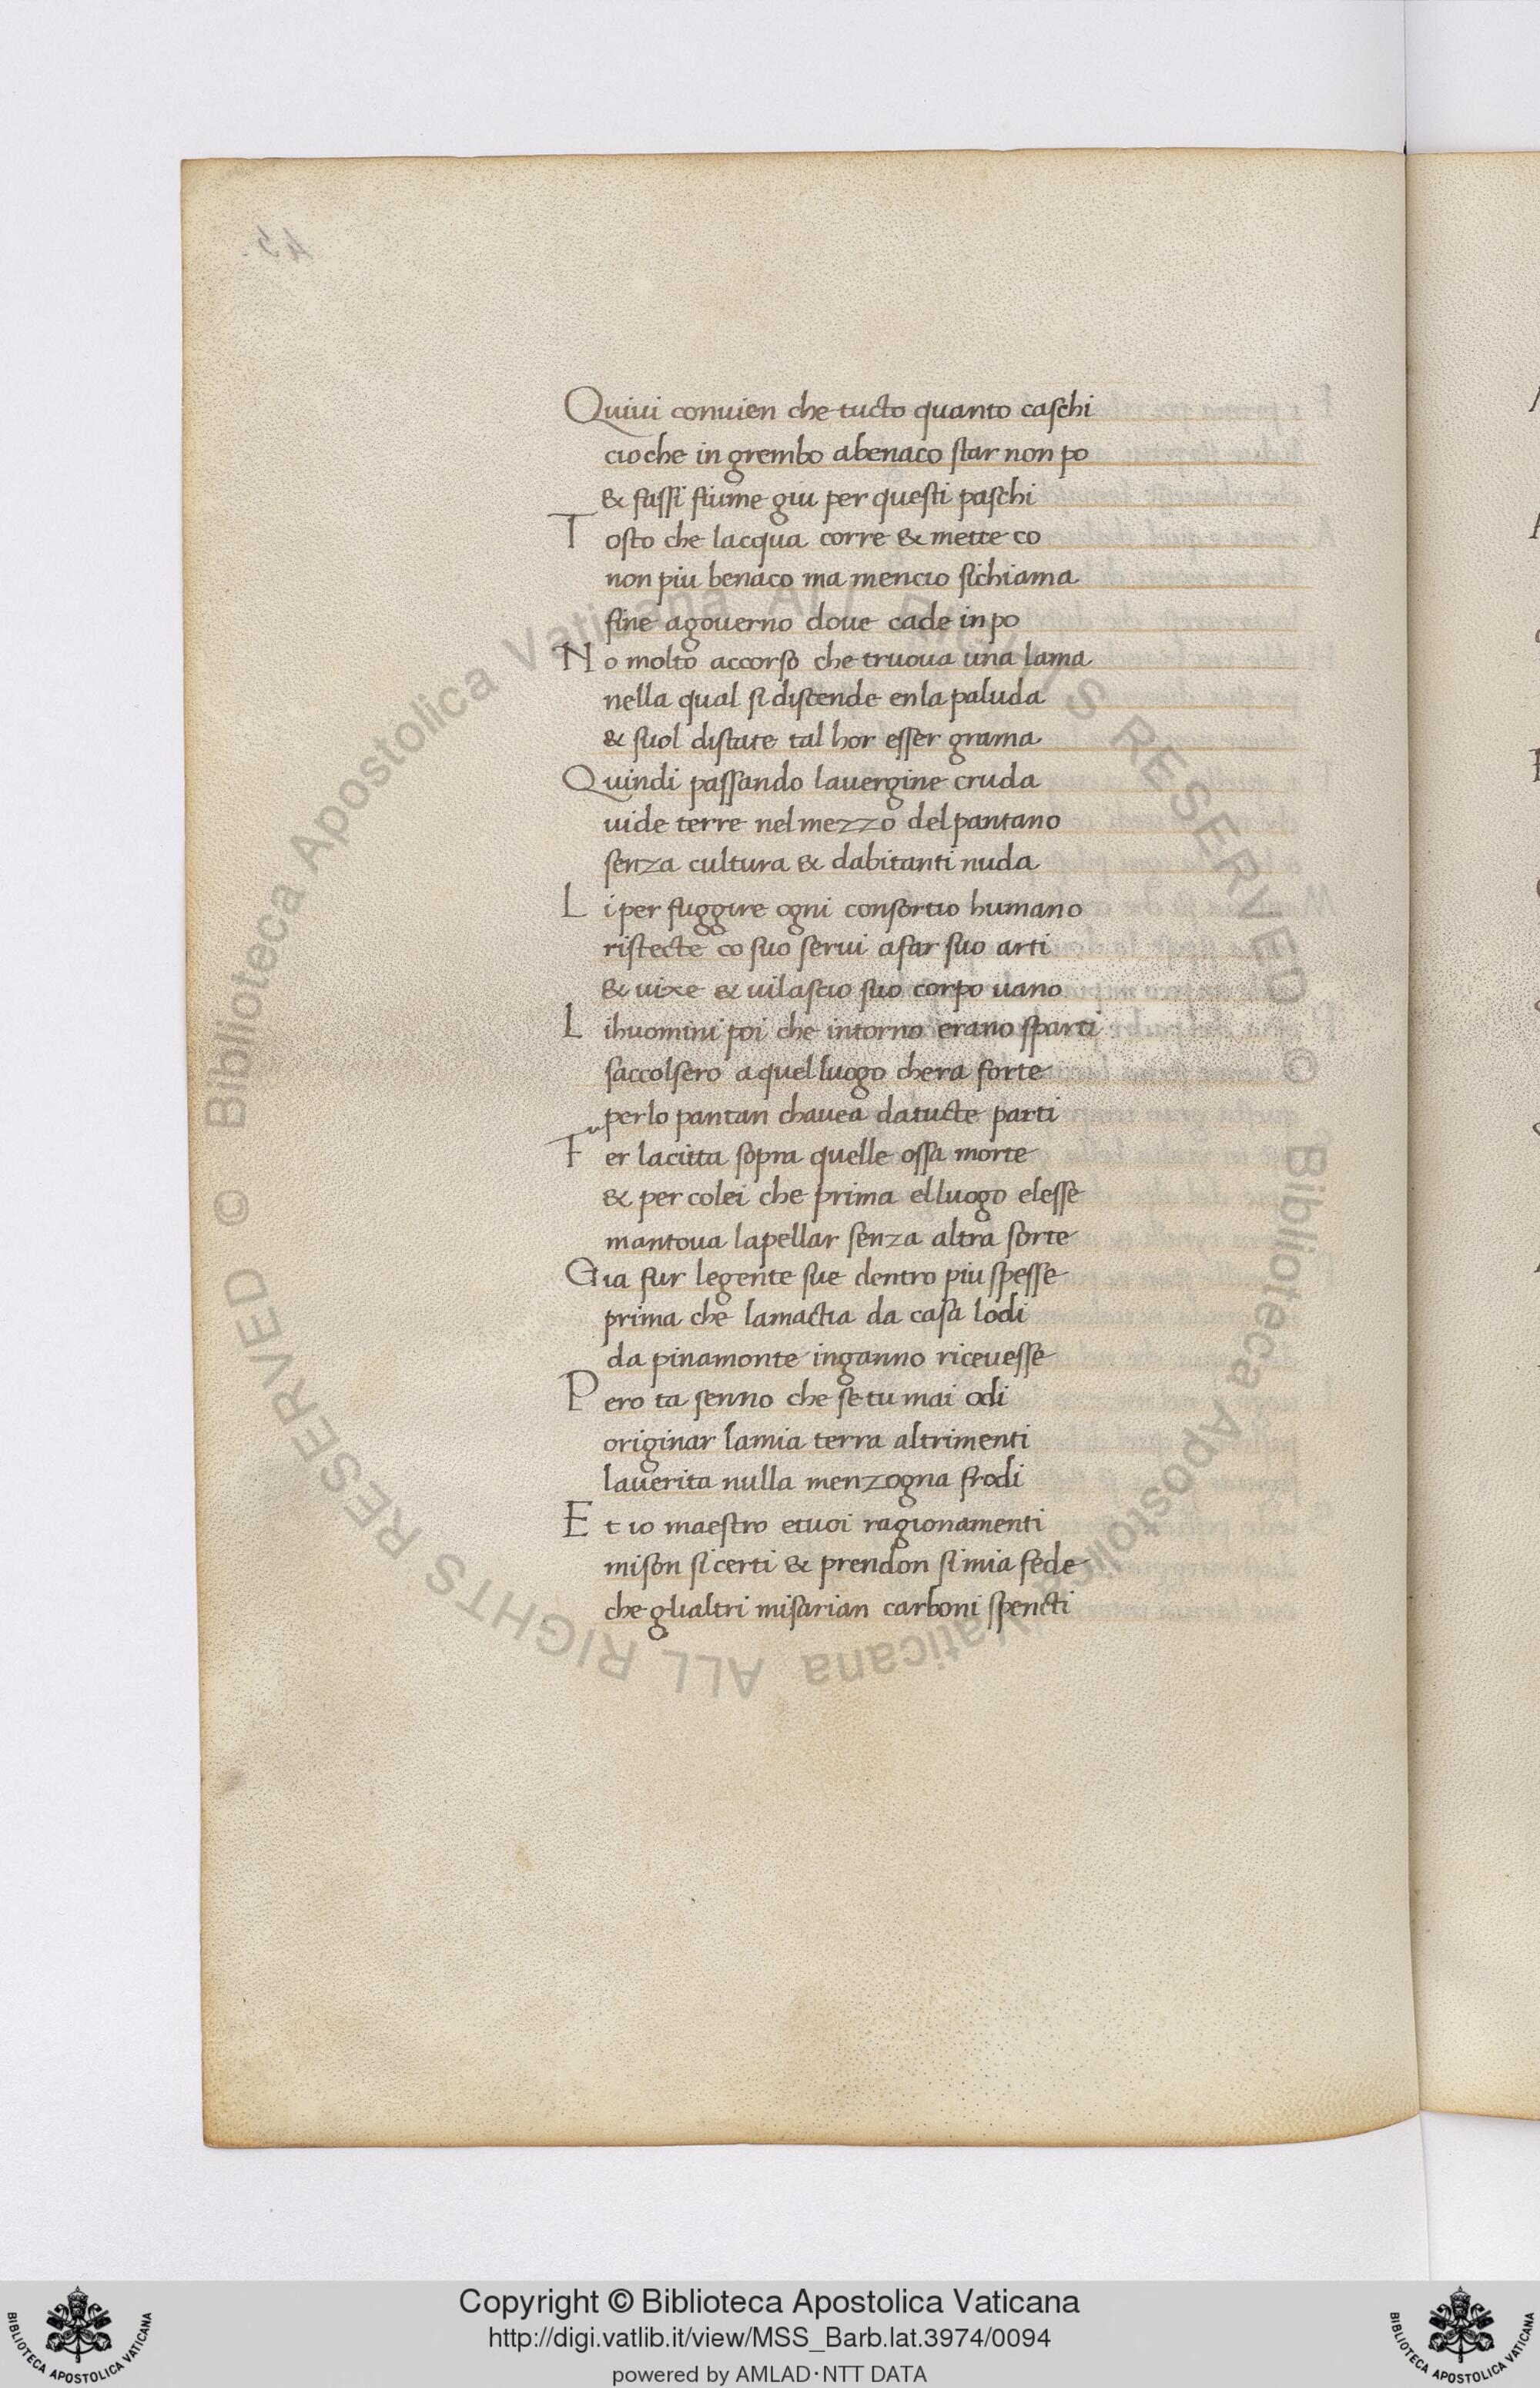 Quiui conuien che tucto quanto caschi
cio che in grembo abenaco star non po
& fassi fiume giu per questi paschi
Tosto che lacqua corre & mette co
non piu benaco ma mencio sichiama
fine agouerno doue cade in po
No molto accorso che truoua una lama
nella qual si discende enla paluda
& suol distate tal hor esser grama
Quindi passando lauergine cruda
uide terre nel mezzo del pantano
senza cultura & dabitanti nuda
Li per fuggire ogni consortio humano
ristecte co suo serui afar suo arti
& uixe & uilascio suo corpo uano
Lihuomini poi che intorno erano sparti
saccolsero aquel luogo chera forte
perlo pantan chauea datucte parti
Fer lacitta sopra quelle ossa morte
& per colei che prima elluogo elesse
mantoua lapellar senza altra sorte
Gia fur legente sue dentro piu spesse
prima che lamactia da casa lodi
da pinamonte inganno riceuesse
Pero ta senno che se tu mai odi
originar lamia terra altrimenti
lauerita nulla menzogna frodi
Et io maestro etuoi ragionamenti
mison sicerti & prendon simia fede
che glialtri misarian carboni spencti
© Biblioteca Apostolica Vaticana ALL RIGHTS RESERVED © Biblioteca Apostolica Vaticana ALL RIGHTS RESERVED
BIBLIOTECA APOSTOLICA VATICANA
Copyright © Biblioteca Apostolica Vaticana
http://digi.vatlib.it/view/MSS_Barb.lat.3974/0094
powered by AMLAD·NTT DATA
BIBLIOTECA APOSTOLICA VATICANA